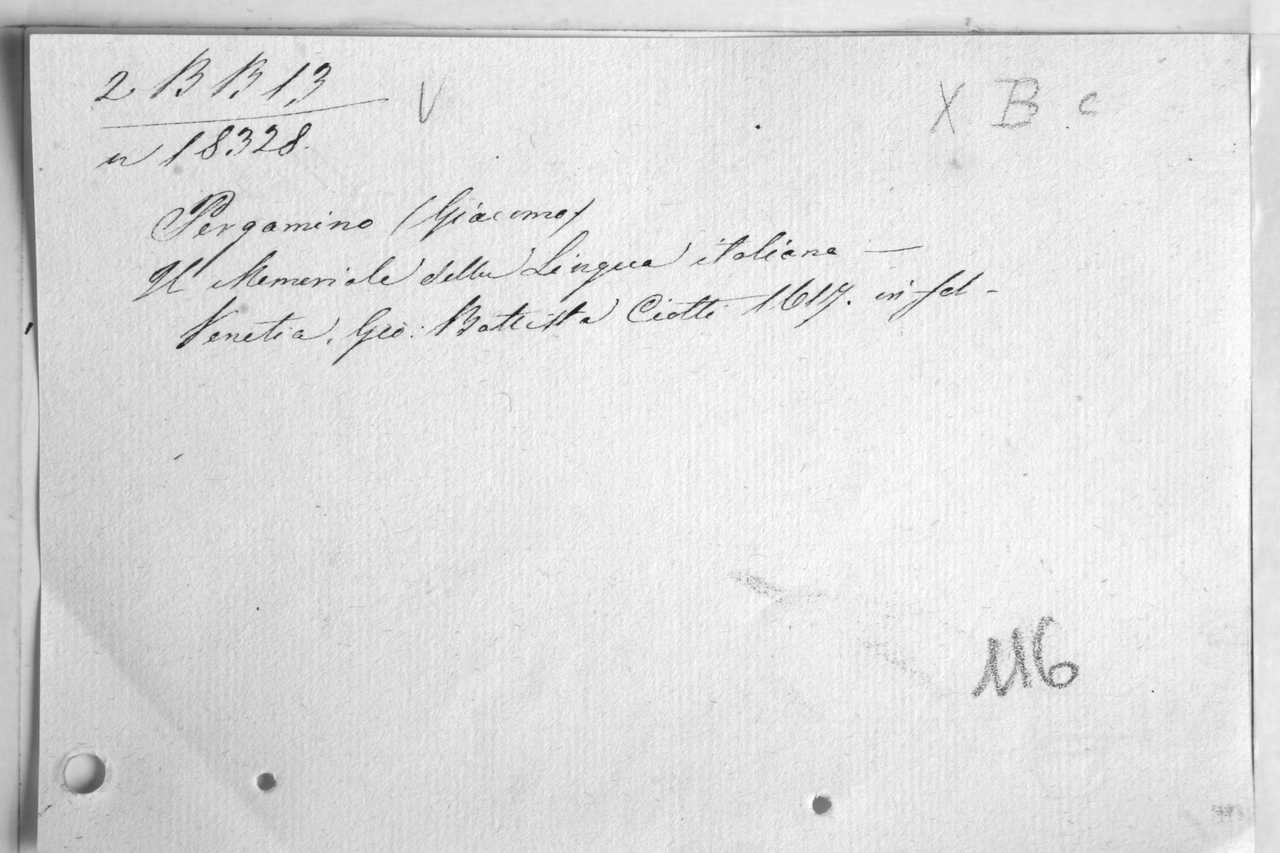 2 B B 13 V X B c
n 18328.
Pergamino (Giacomo)
Il Memoriale della Lingua italiana —
Venetia, Gio: Battista Ciotti 1617. in fol -
116